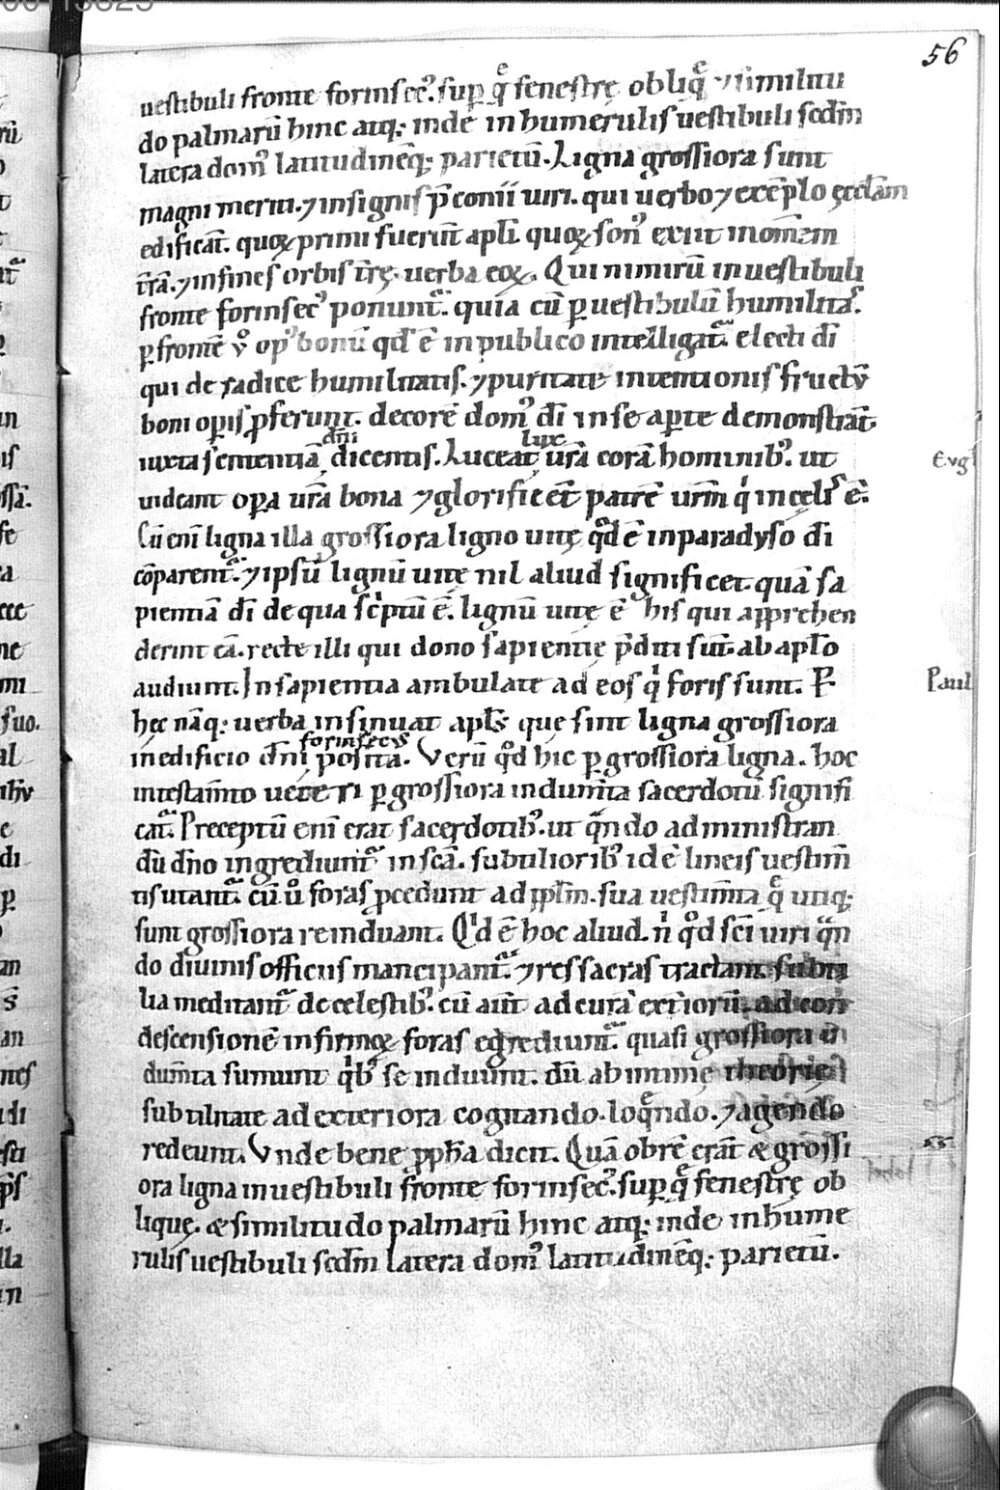 56
uestibuli fronte forinsec᷒. sup̱ qͤ fenestrę obliqͤ ⁊ similitu
do palmarū hinc atq; inde in humerulis uestibuli scd̄m
latera dom᷒ latitudinēq; parietū. Ligna grossiora sunt
magni meriti. ⁊ insignis p̄conii uiri. qui uerbo ⁊ exēplo ęccl̄am
edificāt. quoꝝ primi fuerūt apl̄i. quoꝝ son᷒ exiit in om̄em
t̄rā. ⁊ in fines orbis t̄rę. uerba eoꝝ. Qui nimirū in uestibuli
fronte forinsec᷒ ponunt᷑. quia cū ꝑ uestibulū humilitas.
ꝑ frontē v̊ op᷒ bonū qd̄ ē in publico intelligat᷑. electi dī
qui de radice humilitatis. ⁊ puritate intentionis fructū
boni oꝑis ꝓferunt. decorē dom᷒ dī in se aꝑte demonstrāt.
iuxta sententiā dn̄i dicentis. Luceat lux ur̄a corā hominib᷒. ut
uideant oꝑa ur̄a bona ⁊ glorificēt patrē urm̄ qͥ in cęlis ē.
Evg̅
Cū enī ligna illa grossiora ligno uitę qd̄ ē in paradyso dī
cōparent᷑. ⁊ ipsū lignū uitę nil aliud significet. quā sa
pientiā dī de qua scͥptū ē. lignū uitę ē his qui apprehen
derint eā. recte illi qui dono sapientię p̄diti sūt. ab apl̄o
audiunt. In sapientia ambulate ad eos qͥ foris sunt. P̱
Paul
hęc nāq; uerba insinuat apl̄s que sint ligna grossiora
in edificio dn̄i forinsecus posita. Verū qd̊ hic ꝑ grossiora ligna. hoc
in testam̄to ueteri ꝑ grossiora indum̄ta sacerdotū signifi
cat᷑. Preceptū enī erat sacerdotib᷒. ut qᷓndo administran
dū dn̄o ingrediunt᷑ in scā. subtiliorib᷒ id ē lineis uestim̄
tis utant᷑. cū ů foras ꝓcedunt ad ppl̄m. sua uestim̄ta qͤ utiq;
sunt grossiora reinduant. Qͥd ē hoc aliud. nͥ qd̊ scī uiri qᷓn
do diuinis officiis mancipant᷑. ⁊ res sacras tractant. subti
lia meditant᷑ de celestib᷒. cū aūt ad curā exteriorū. ad con
descensionē infirmoꝝ foras egrediunt᷑. quasi grossiora in
dum̄ta sumunt qͥb᷒ se induunt. dū ab intimę theorięs
subtilitate ad exteriora cogitando. loqͤndo. ⁊ agendo
redeunt. Vnde bene ꝓph̄a dicit. Quā obrē erāt & grossi
ora ligna in uestibuli fronte forinsec᷒. sup̱ qͤ fenestrę ob
lique. & similitudo palmarū hinc atq; inde in hume
rulis uestibuli scd̄m latera dom᷒ latitudinēq; parietū.